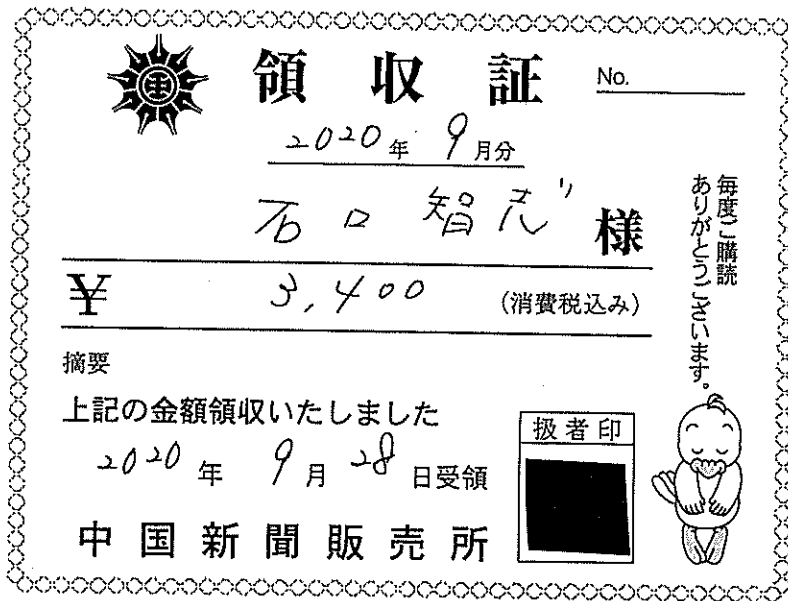 領収証
No.
2020年 9月分
石口 智志 様
¥ 3,400 (消費税込み)
毎度ご購読
ありがとうございます。
摘要
上記の金額領収いたしました
2020年 9月 28日受領
扱者印
中国新聞販売所